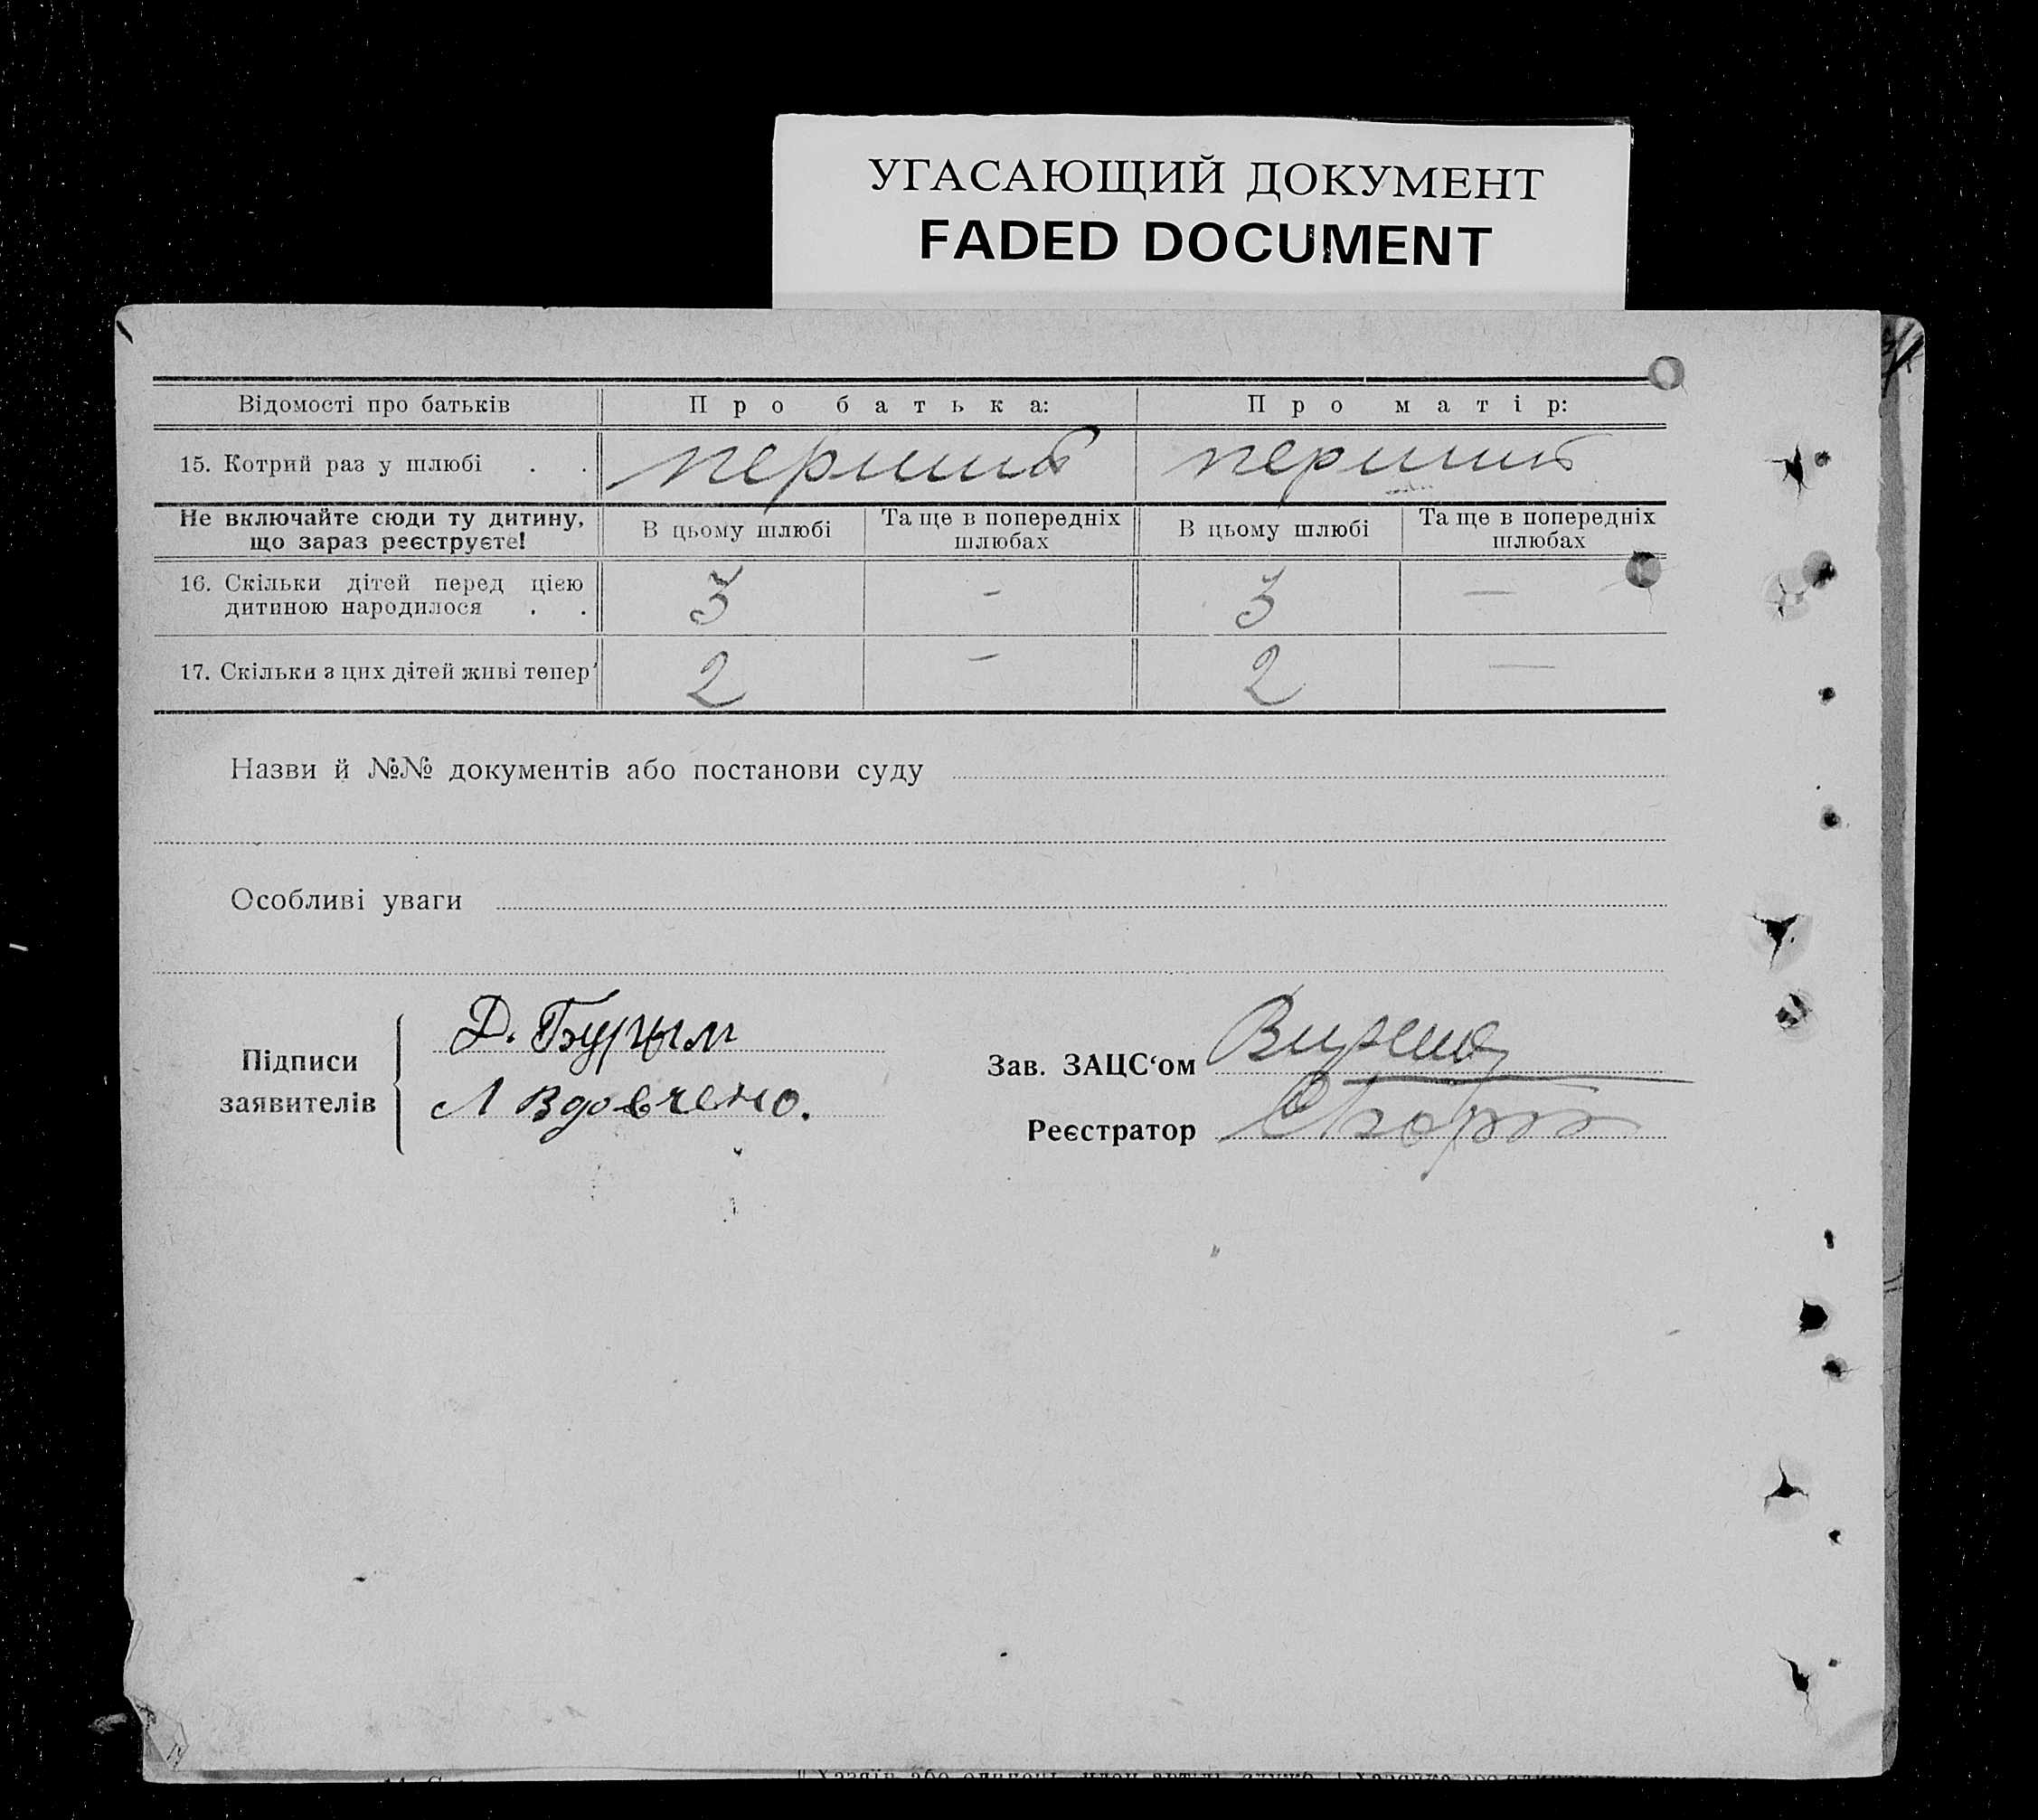 УГАСАЮЩИЙ ДОКУМЕНТ
FADED DOCUMENT
Відомості про батьків Про батька: Про матір:
15. Котрий раз у шлюбі . . перший перший
Не включайте сюди ту дитину, що зараз реєструєте! В цьому шлюбі Та ще в попередніх шлюбах В цьому шлюбі Та ще в попередніх шлюбах
16. Скільки дітей перед цією дитиною народилося . . 3 - 3 —
17. Скільки з цих дітей живі тепер' 2 — 2 —
Назви й №№ документів або постанови суду
Особливі уваги
Підписи заявителів
Д.
Л Вдовчено.
Зав. ЗАЦС‘ом
Реєстратор